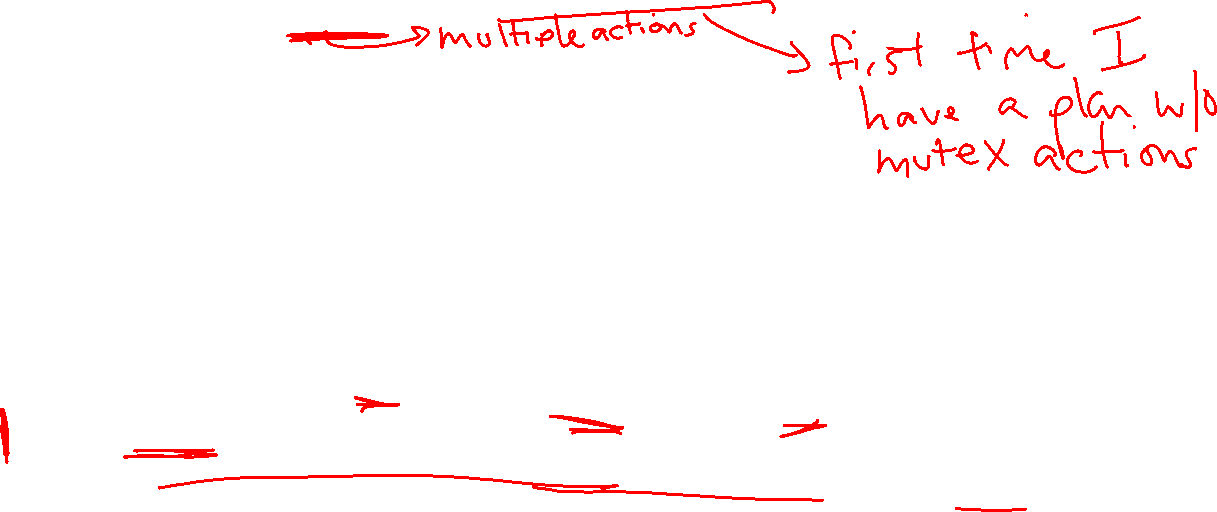 multiple actions
first time I
have a plan w/o
mutex actions